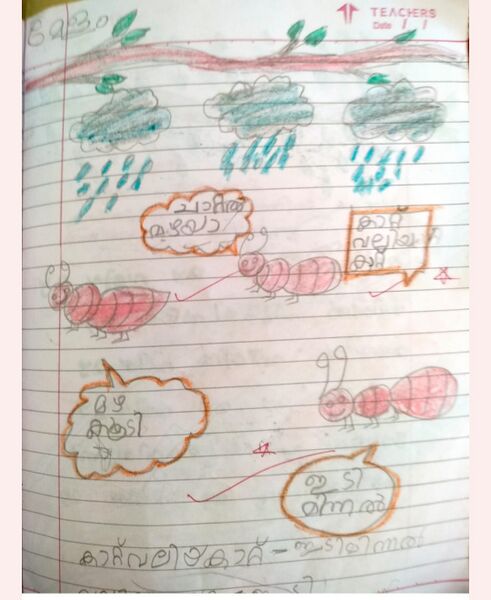 മേളം
TEACHERS
Date / /
ചാറ്റൽ
മഴയോ
കാറ്റ്
വലിയ
കാറ്റ്
മഴ
കൂടി
ഇടി
മിന്നൽ
കാറ്റ് വലിയകാറ്റ് - ഇടിമിന്നൽ